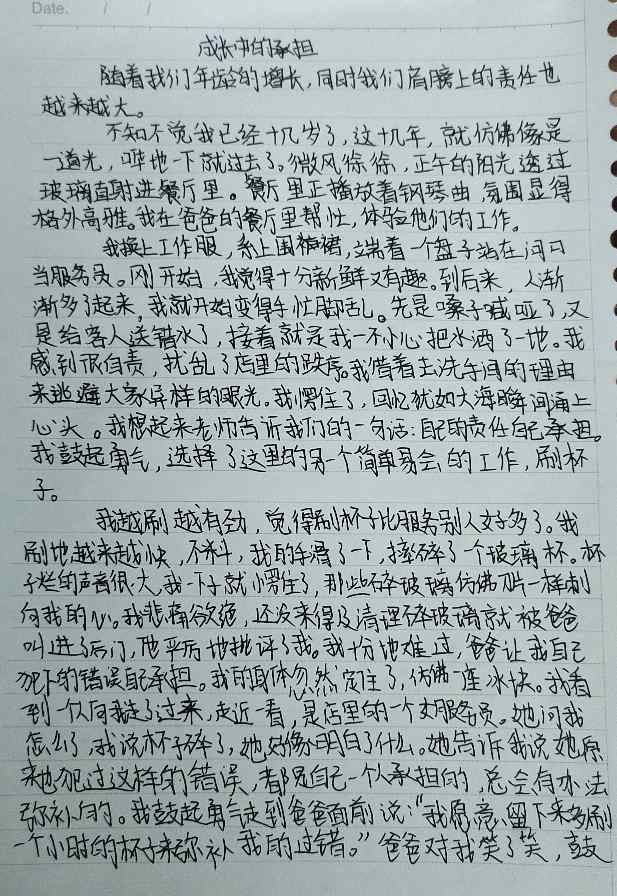 Date. / /
成长中的承担
随着我们年龄的增长,同时我们肩膀上的责任也
越来越大。
不知不觉我已经十几岁了,这十几年,就仿佛像是
一道光,哗地一下就过去了。微风徐徐,正午的阳光透过
玻璃直射进餐厅里。餐厅里正播放着钢琴曲,氛围显得
格外高雅。我在爸爸的餐厅里帮忙,体验他们的工作。
我换上工作服,系上围裙,端着一个盘子站在门口
当服务员。刚开始,我觉得十分新鲜又有趣。到后来,人渐
渐多了起来,我就开始变得手忙脚乱。先是嗓子喊哑了,又
是给客人送错水了,接着就是我一不小心把水洒了一地。我
感到很自责,扰乱了店里的秩序。我借着去洗手间的理由
来逃避大家异样的眼光。我愣住了,回忆犹如大海瞬间涌上
心头。我想起来老师告诉我们的一句话:自己的责任自己承担。
我鼓起勇气,选择了这里的另一个简单易会的工作,刷杯
子。
我越刷越有劲,觉得刷杯子比服务别人好多了。我
刷地越来越快,不料,我的手滑了一下,摔碎了个玻璃杯。杯
子烂的声音很大,我一下子就愣住了,那些碎玻璃仿佛刀片一样刺
向我的心。我悲痛欲绝,还没来得及清理碎玻璃就被爸爸
叫进了后门,他严厉地批评了我。我十份地难过,爸爸让我自己
犯下的错误自己承担。我的身体忽然定住了,仿佛一座冰块。我看
到一个人向我走了过来,走近一看,是店里的一个女服务员。她问我
怎么了,我说杯子碎了,她好像明白了什么。她告诉我说她原
来也犯过这样的错误,都是自己一个人承担的,总会有办法
弥补的。我鼓起勇气走到爸爸面前说:“我愿意留下来多刷
一个小时的杯子来弥补我的过错。”爸爸对我笑了笑,鼓